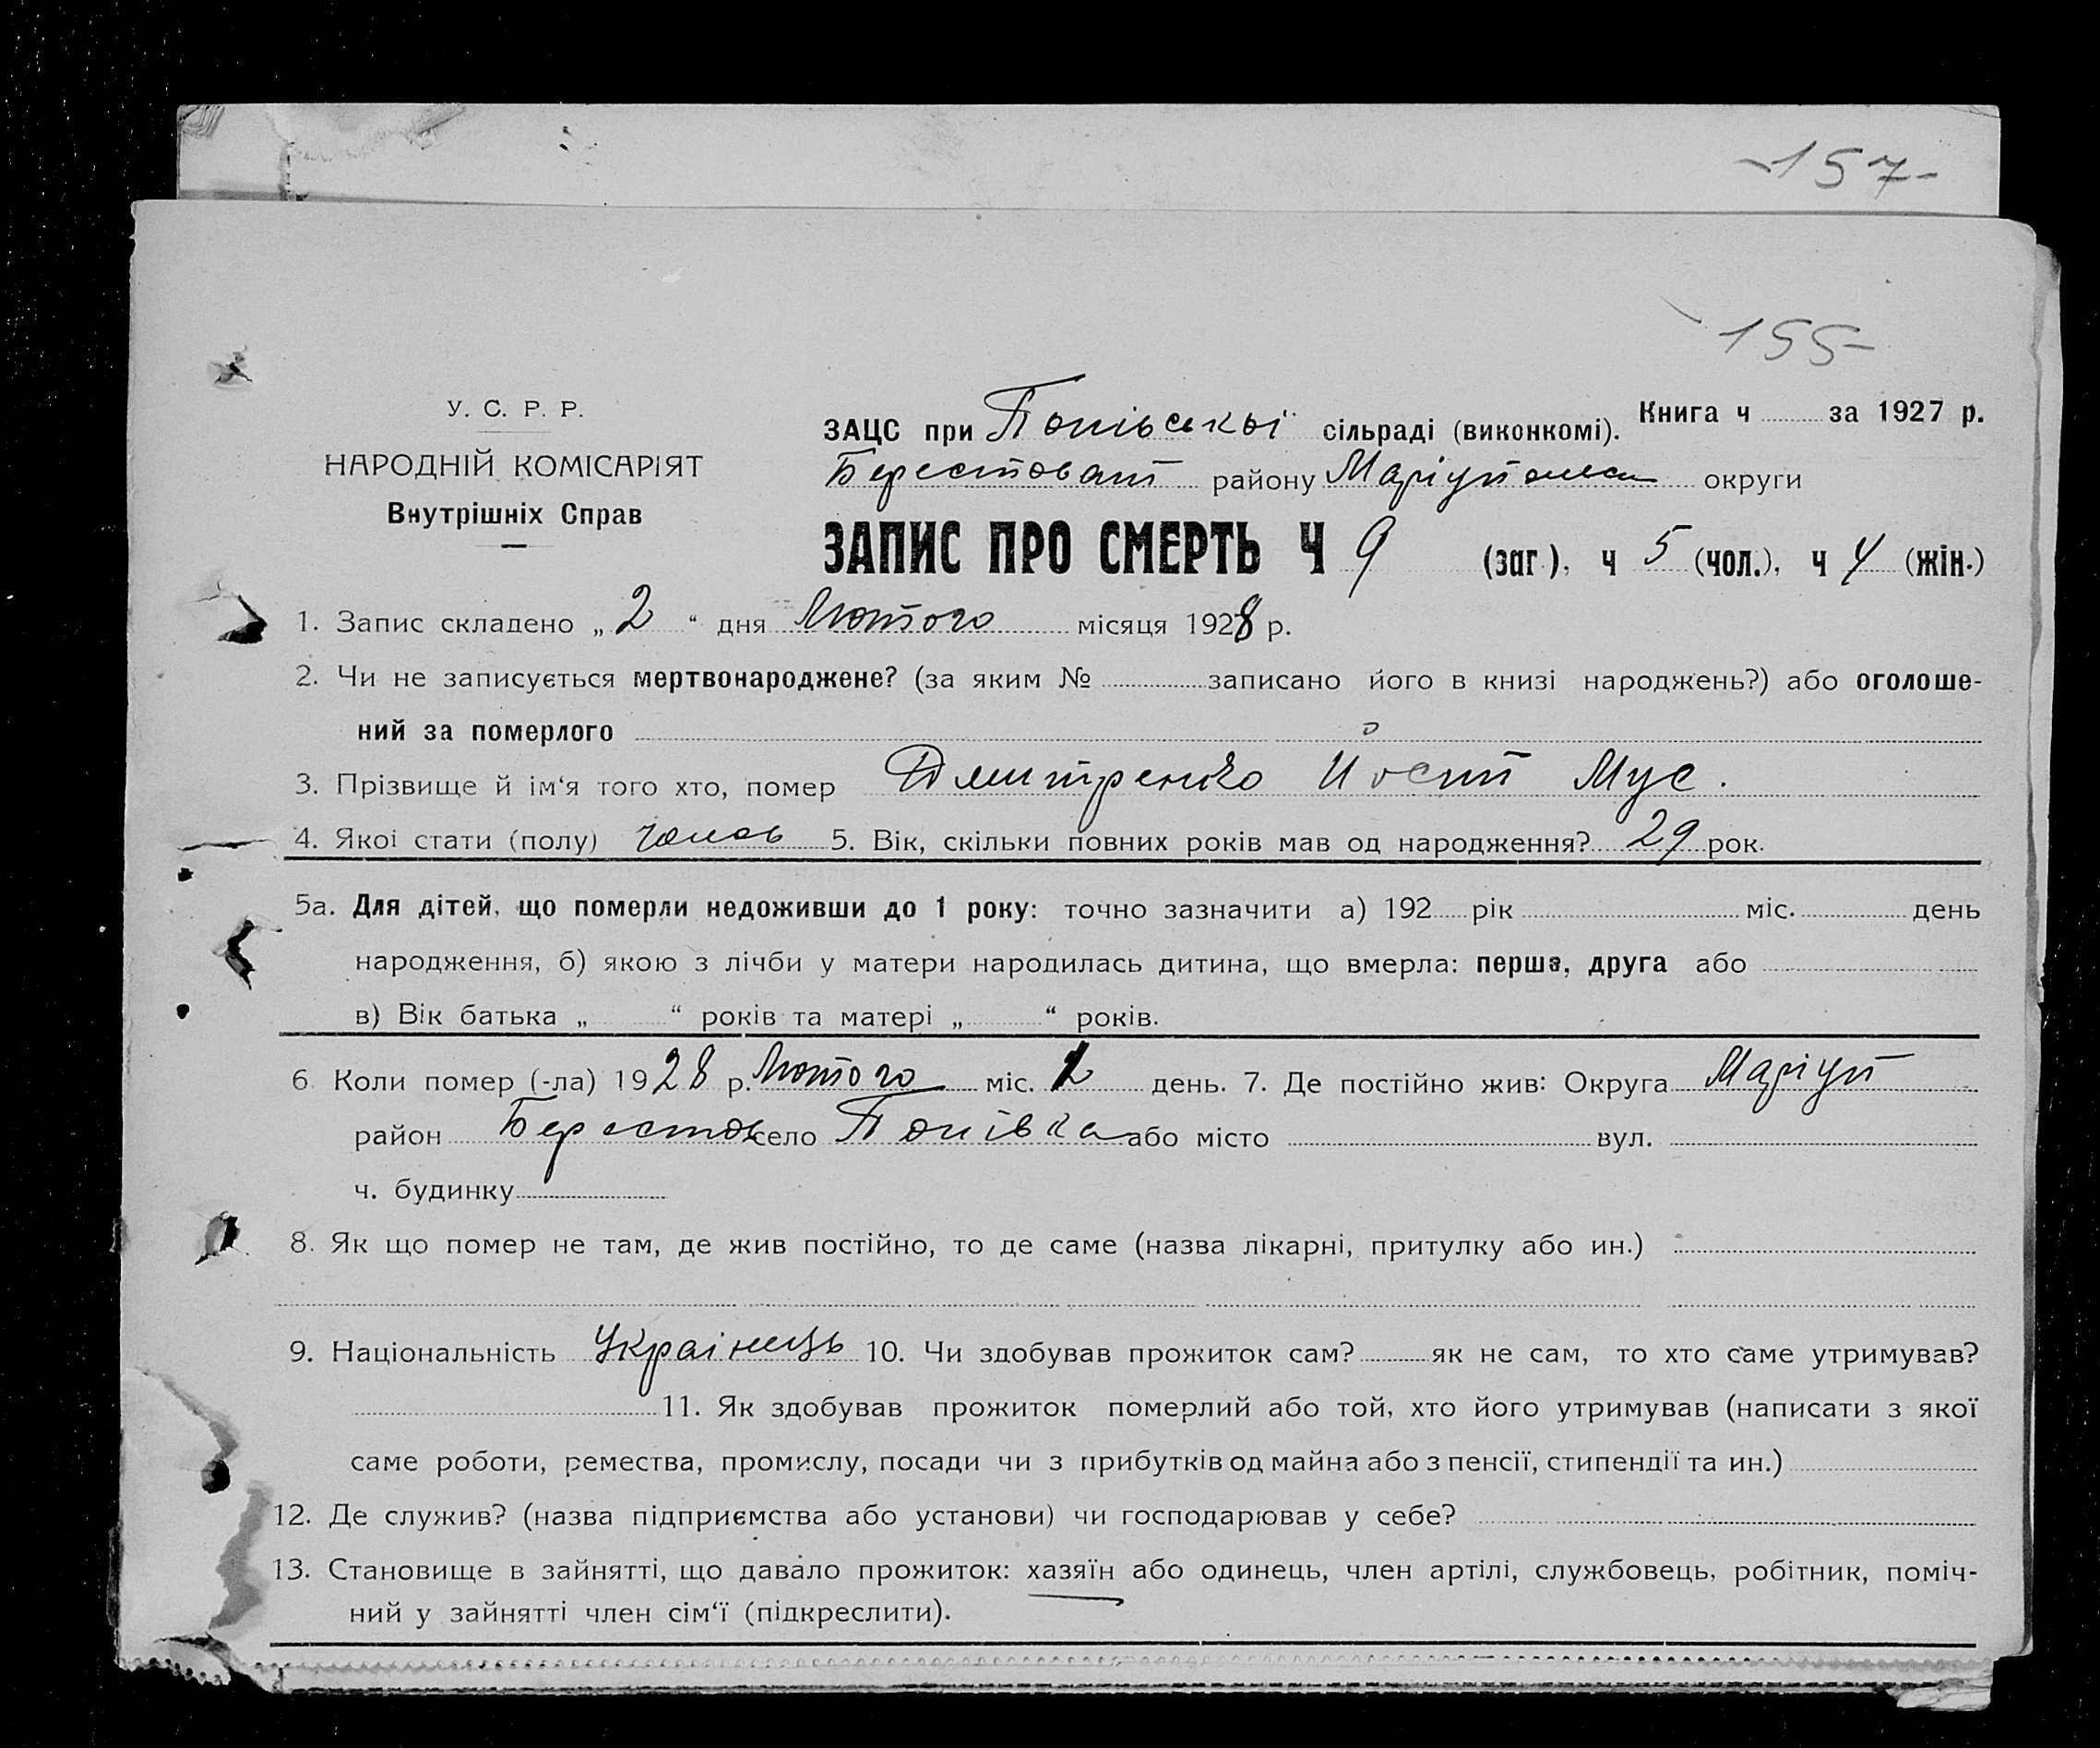 -157-
155-
У. С. Р. Р.
НАРОДНІЙ КОМІСАРІЯТ
Внутрішніх Справ
ЗАЦС при Попівської сільраді (виконкомі). Книга ч за 1927 р.
Берестоват району Маріупольск округи
ЗАПИС ПРО СМЕРТЬ Ч 9 (заг.), ч 5 (чол.), ч 4 (жін.)
1. Запис складено „ 2 “ дня Лютого місяця 1928 р.
2. Чи не записується мертвонароджене? (за яким № записано його в книзі народжень?) або оголоше-
ний за померлого
3. Прізвище й ім‘я того хто, помер Дмитренко Йосип Мус.
4. Якої стати (полу) чолов 5. Вік, скільки повних років мав од народження? 29 рок.
5а. Для дітей, що померли недоживши до 1 року: точно зазначити а) 192 рік міс. день
народження, б) якою з лічби у матери народилась дитина, що вмерла: перша, друга або
в) Вік батька „ “ років та матері „ “ років.
6 Коли помер (-ла) 1928 р. Лютого міс. 2 день. 7. Де постійно жив: Округа Маріуп
район Берестов село Попівка або місто вул.
ч. будинку
8. Як що помер не там, де жив постійно, то де саме (назва лікарні, притулку або ин.)
9. Національність Українець 10. Чи здобував прожиток сам? як не сам, то хто саме утримував?
11. Як здобував прожиток померлий або той, хто його утримував (написати з якої
саме роботи, ремества, промислу, посади чи з прибутків од майна або з пенсії, стипендії та ин.)
12. Де служив? (назва підприємства або установи) чи господарював у себе?
13. Становище в зайнятті, що давало прожиток: хазяїн або одинець, член артілі, службовець, робітник, поміч-
ний у зайнятті член сім‘ї (підкреслити).